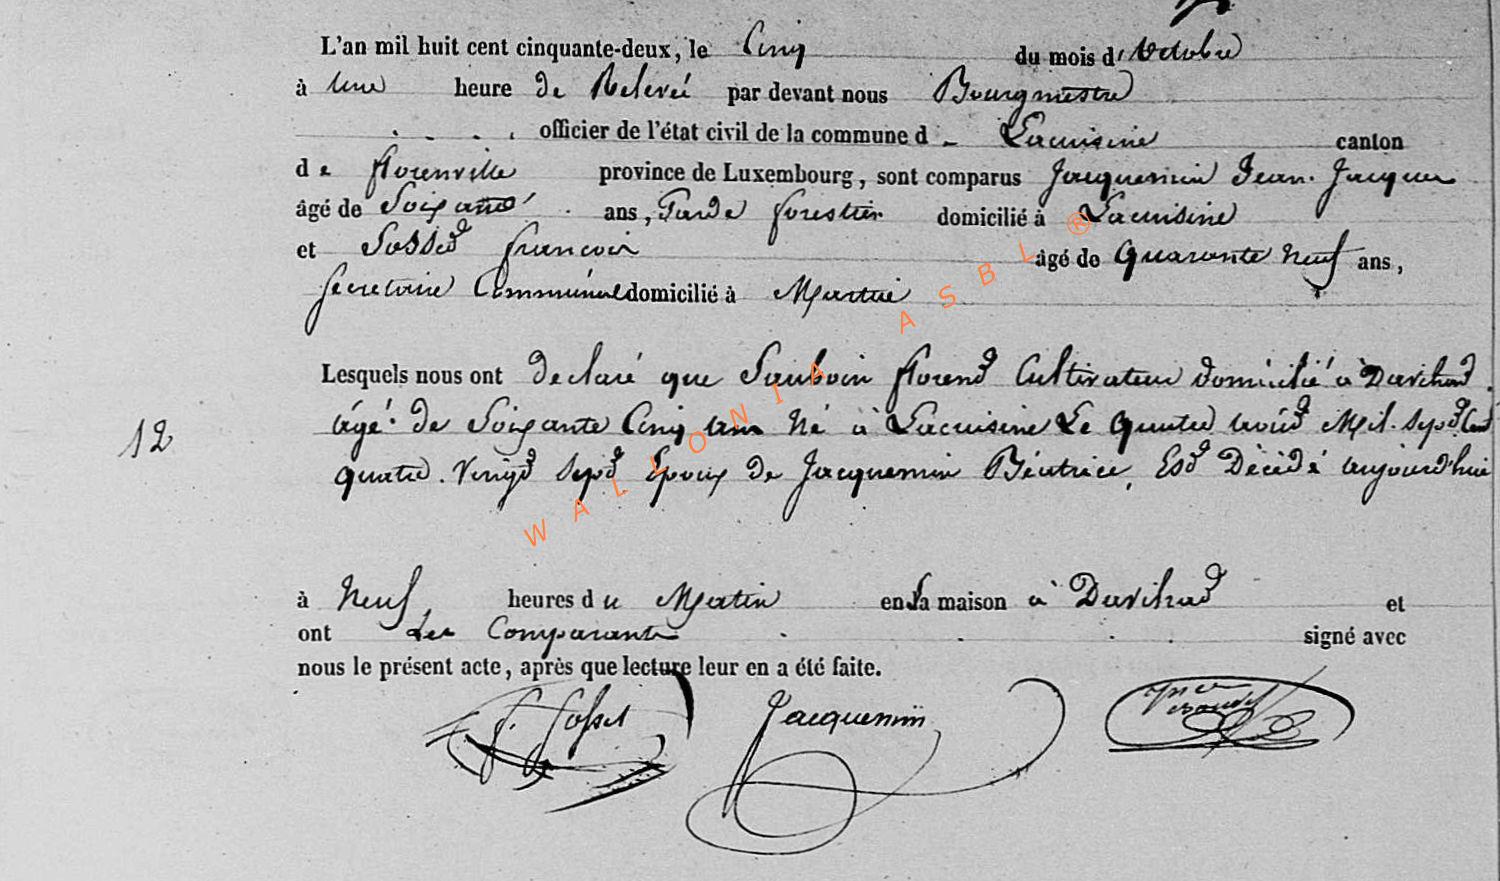 L'an mil huit cent cinquante-deux, le Cinq du mois d'octobre
à une heure de Relevée par devant nous Bourgmestre
officier de l'état civil de la commune d - Lacuisine canton
de florenville province de Luxembourg, sont comparus Jacquemin Jean Jacques
âgé de Soixante ans, Garde forestier domicilié à Lacuisine
et Gosset françois âgé de Quarante neuf ans,
Secretaire Communal domicilié à Martué
Lesquels nous ont declaré que florend Cultivateur domicilié à
12
âgé de Soixante Cinq ans Né à Lacuisine Le Quatre août Mil. Sept Cent
quatre. Vingt Sept Epoux de Jacquemin Béatrice, Est Décédé aujourd'hui
à Neuf, heures du Matin en Sa maison à et
ont les Comparants signé avec
nous le présent acte, après que lecture leur en a été faite.
f. Gosset Jacquemin
WALLONIA ASBL ®